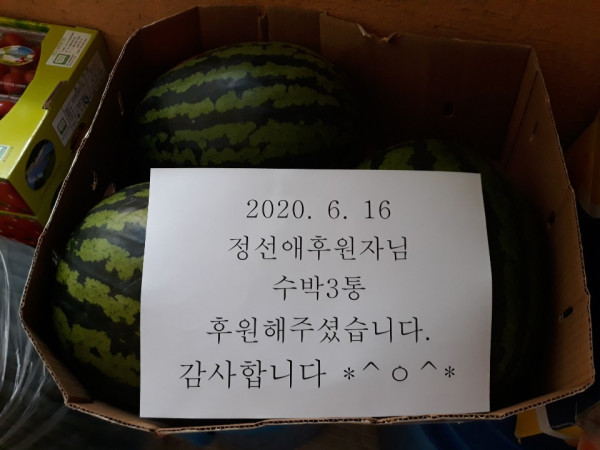 2020. 6. 16
정선애후원자님
수박3통
후원해주셨습니다.
감사합니다 *^ㅇ^*